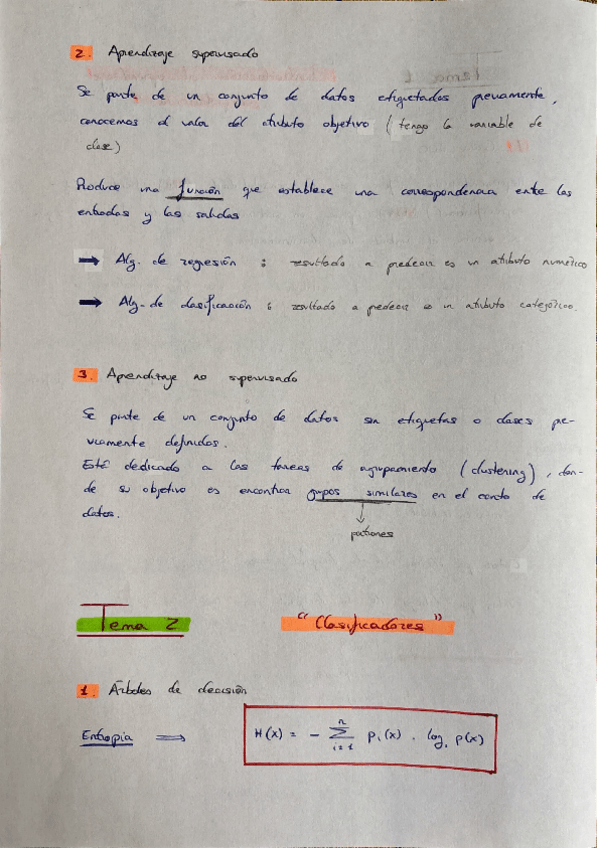 2. Aprendizaje supervisado
Se parte de un conjunto de datos etiquetados previamente,
conocemos el valor del atributo objetivo (tengo la variable de
clase)
Produce una función que establece una correspondencia entre las
entradas y las salidas
→ Alg. de regresión : resultado a predecir es un atributo numérico
→ Alg. de clasificación : resultado a predecir es un atributo categórico.
3. Aprendizaje no supervisado
Se parte de un conjunto de datos sin etiquetas o clases pre-
viamente definidas.
Esté dedicado a las tareas de agrupamiento (clustering), don-
de su objetivo es encontrar grupos similares en el conto de
datos.
patrones
Tema 2 "Clasificadores"
1. Árboles de decisión
Entropia ⟹ H(x) = - ∑ⁿᵢ₌₁ pᵢ(x) · log p(x)